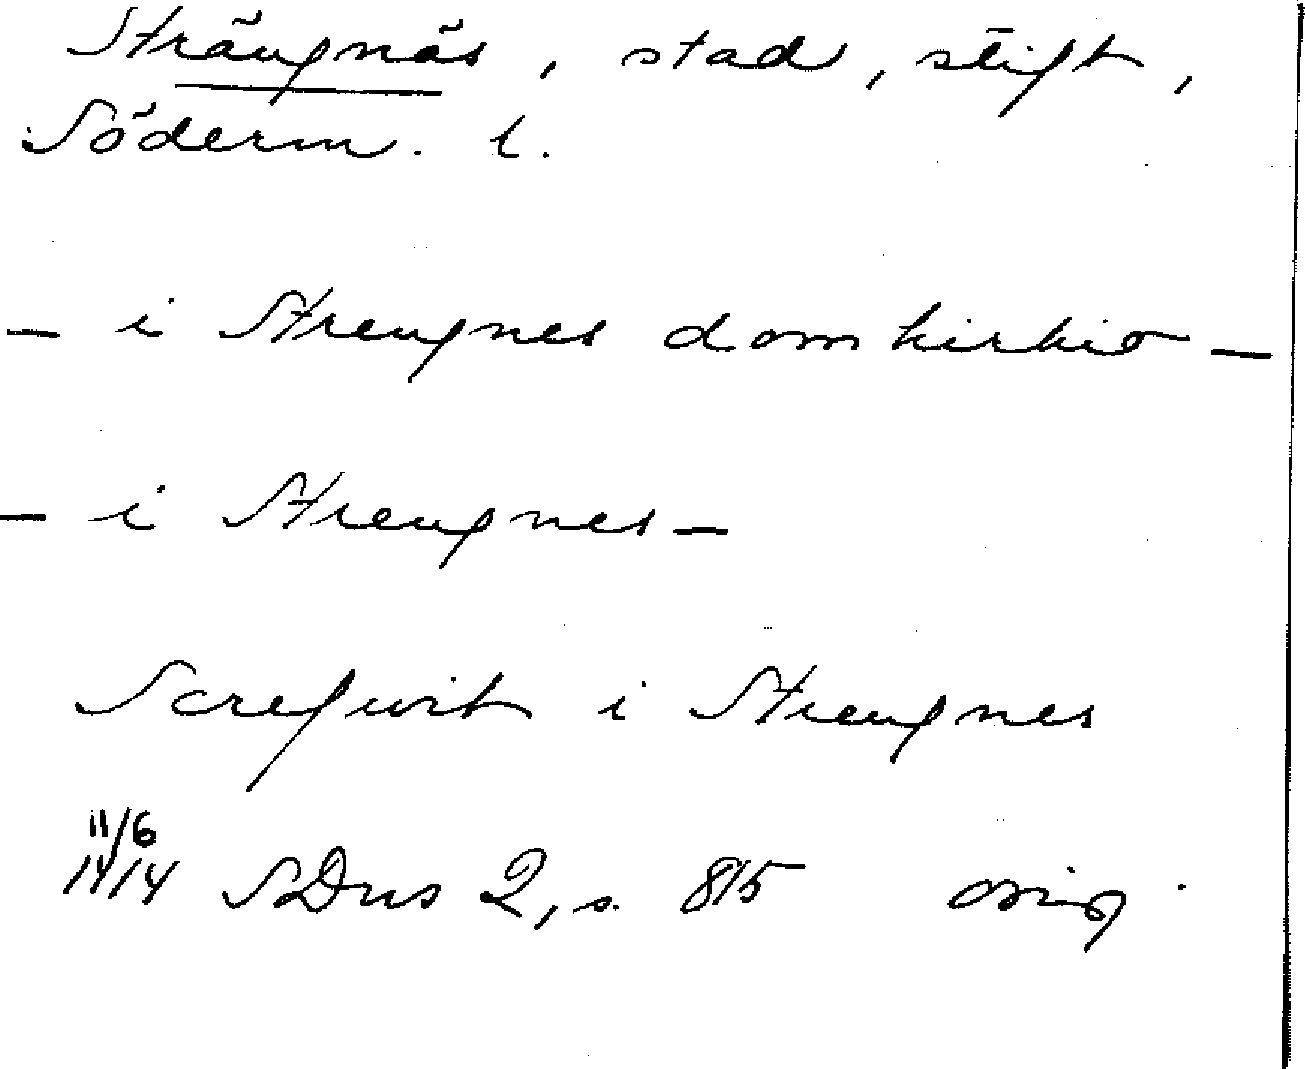 Strängnäs, stad, stift,
Söderm. l.
— i Strengnes domkirkio —
— i Strengnes —
Screfwit i Strengnes
11/6
1414 SDns 2, s. 815 orig.